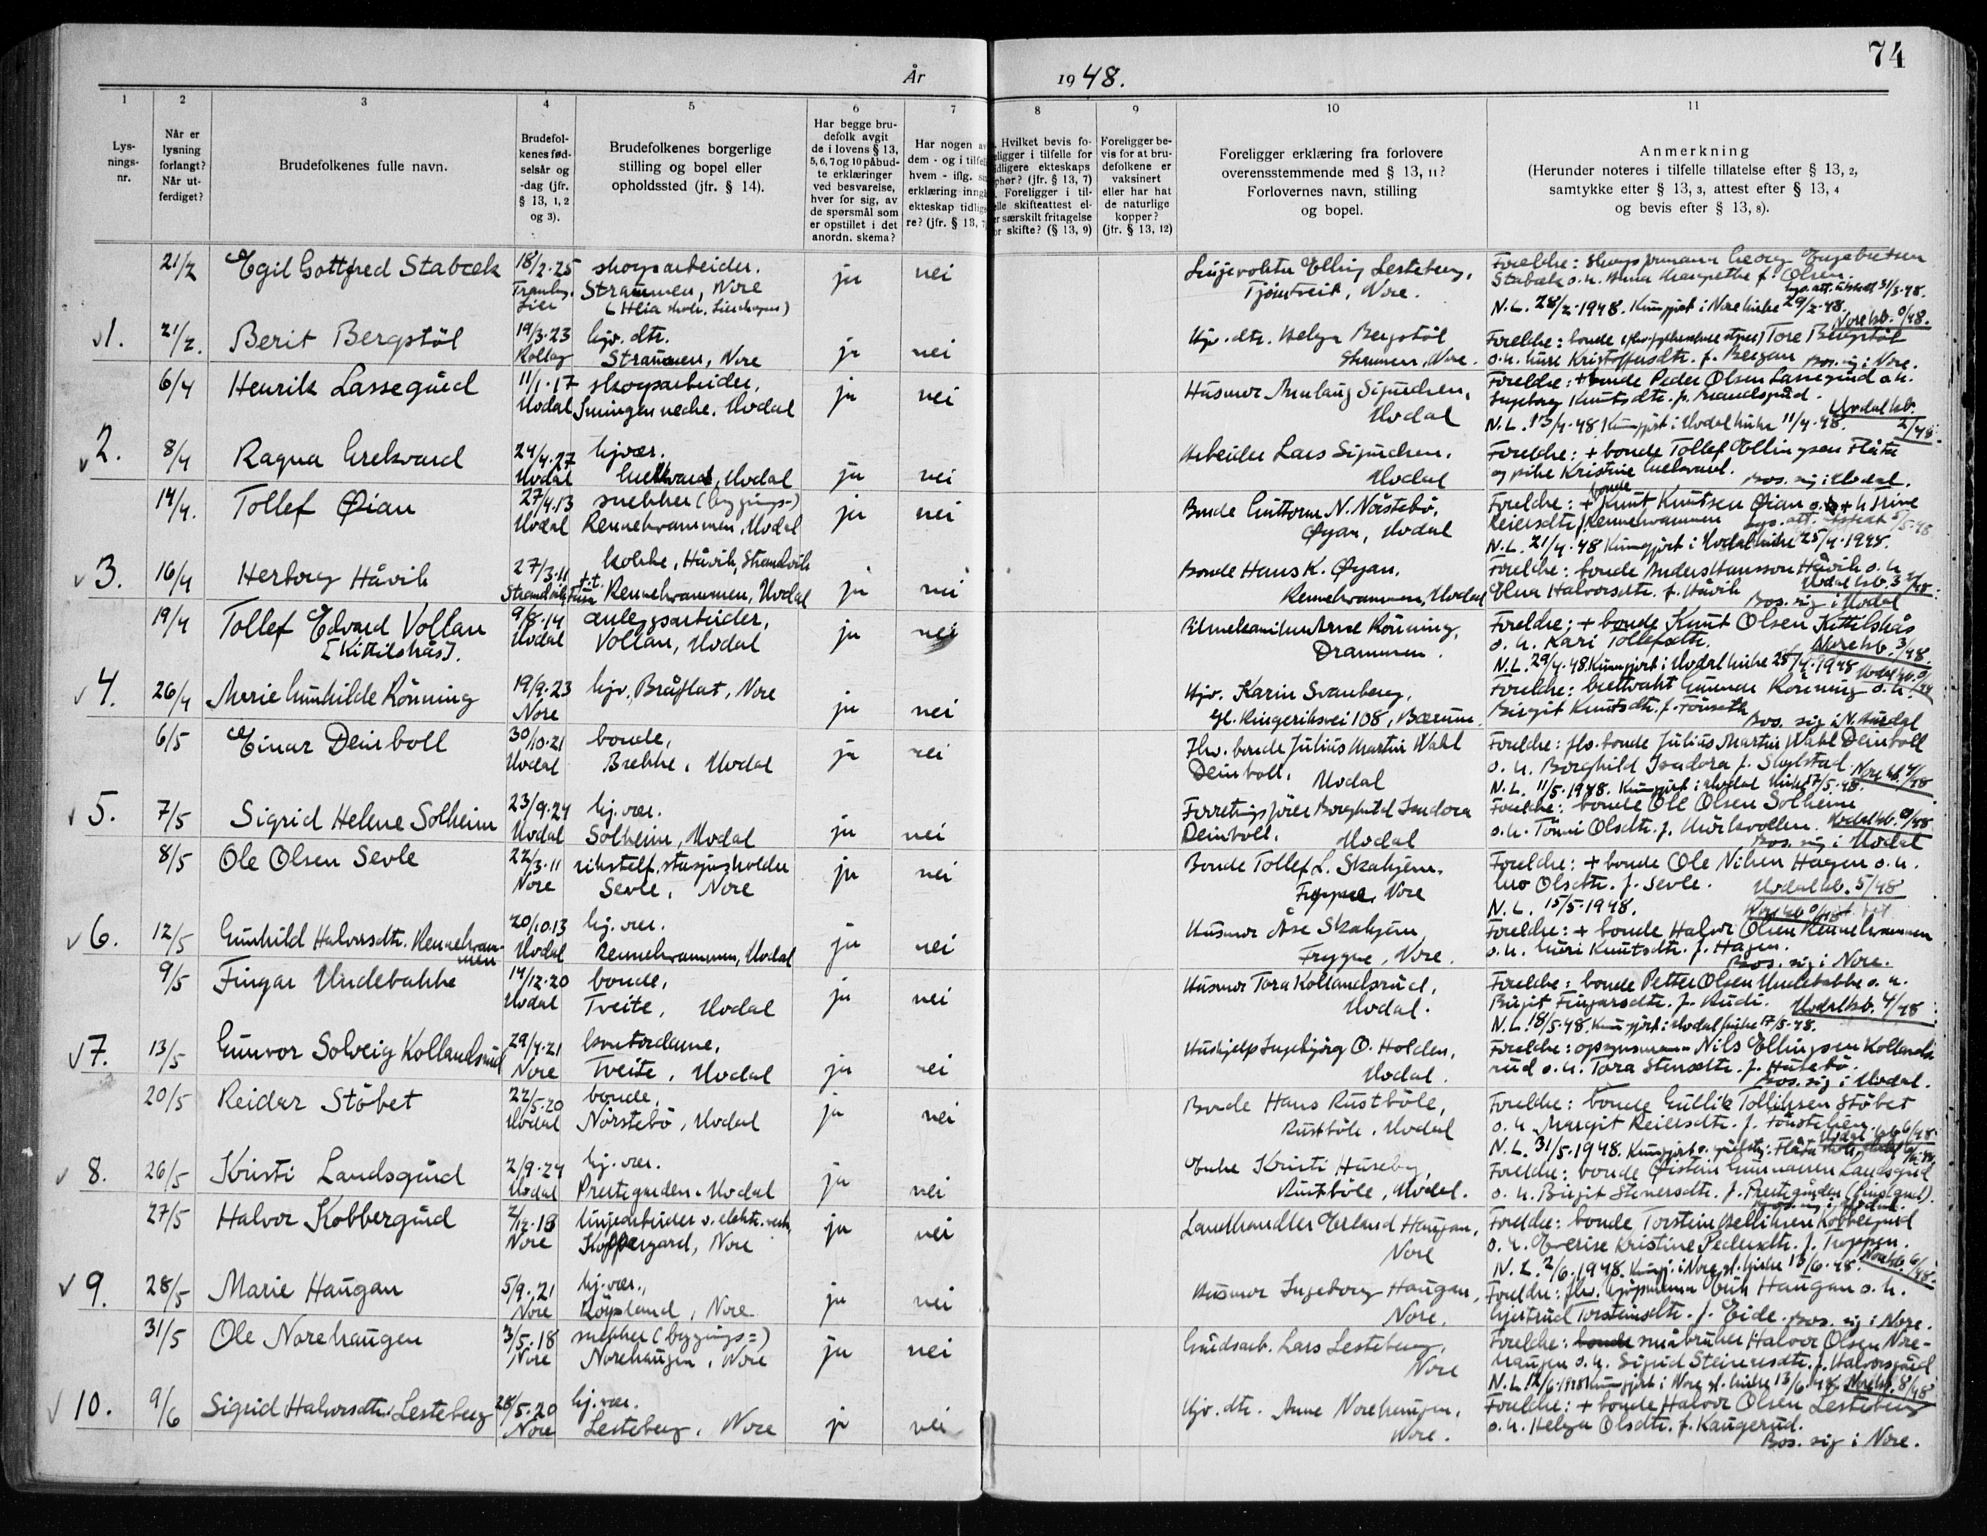 74
År 1948.
1 2 3 4 5 6 7 8 9 10 11
Lys-
nings-
nr.
Når er
lysning
forlangt?
Når ut-
ferdiget?
Brudefolkenes fulle navn.
Brudefol-
kenes fød-
selsår og
-dag (jfr.
§ 13, 1, 2
og 3).
Brudefolkenes borgerlige
stilling og bopel eller
opholdssted (jfr. § 14).
Har begge bru-
defolk avgit
de i lovens § 13,
5, 6, 7 og 10 påbud-
te erklæringer
ved besvarelse,
hver for sig, av
de spørsmål som
er opstillet i det
anordn. skema?
Har nogen av
dem - og i tilfelle
hvem - iflg.
erklæring inngått
ekteskap tidlige-
re? (jfr. § 13, 7)
Hvilket bevis fo-
religger i tilfelle for
tidligere ekteskaps
ophør? (jfr. § 13, 7)
Foreligger i til-
felle skifteattest el-
ler særskilt fritagelse
for skifte? (§ 13, 9)
Foreligger be-
vis for at bru-
defolkene er
vaksinert
eller har hat
de naturlige
kopper?
(jfr. § 13, 12)
Foreligger erklæring fra forlovere
overensstemmende med § 13, 11?
Forlovernes navn, stilling
og bopel.
Anmerkning
(Herunder noteres i tilfelle tillatelse efter § 13, 2,
samtykke efter § 13, 3, attest efter § 13, 4
og bevis efter § 13, 8).
21/2 Egil Gottfred Stabæk 18/2-25 skogsarbeider. ja nei
Tranby Lier Straumen, Nore
Elling Lesteberg,
Tjøntveit, Nore.
Foreldre: Georg Engebretsen
Stabæk o.h. Anna Margrethe f. Olsen.
N.L. 28/2-1948. Kungjort i Nore kirke 29/2-48.
1. 21/2. Berit Bergstøl 19/3-23 hjv. dtr. ja nei
Rollag Straumen, Nore
Hjv. dtr. Helga Bergstøl
Straumen, Nore.
Foreldre: bonde Tore Bergstøl
o.h. Kristoffersdtr. f. Bergan Bos. sig i Nore.
6/4 Henrik Lassegård 11/1-17 skogsarbeider, ja nei
Uvdal Uvdal
Husmor Sjurdsen,
Uvdal
Foreldre: + bonde Peder Olsen Lassegård o.h.
Ingeborg Knutsdtr. f.
N.L. 13/4-48. Kungjort i Uvdal kirke 11/4-48. Uvdal kb. 2/48
2. 8/4 Ragna Grekvard 24/4-27 hjvær. ja nei
Uvdal Uvdal
Arbeider Lars Sjurdsen.
Uvdal
Foreldre: + bonde Tollef Ellingsen Flåta
og pike Kristine Bos. sig i Uvdal.
14/4. Tollef Øian 27/4.13 snekker (byggings-) ja nei
Uvdal Rennehvammen, Uvdal
Bonde Guttorm N. Norstebø,
Øyan, Uvdal
Foreldre: + bonde Knut Knutsen Øian
Reiersdtr f. Rennehvammen
N.L. 21/4-48 Kungjort i Uvdal kirke 25/4-1948.
3. 16/4 Herborg Håvik 27/3-11 kokke, Håvik, Strandvik ja nei
Strandvik t.t. Rennehvammen, Uvdal
Bonde Hans K. Øyan,
Rennehvammen, Uvdal
Foreldre: bonde Anders Hansson Håvik o.h.
Halvorsdtr. f. Håvik Bos. sig i Uvdal
19/4 Tollef Edvard Vollan 9/8-14 anleggsarbeider, ja nei
[Kittilshås]. Uvdal Vollan, Uvdal
Arne Rønning,
Drammen.
Foreldre: + bonde Knut Olsen Kittilshås
o.h. Kari Tollefsdtr. Nore kb. 3/48.
N.L. 29/4-48. Kungjort i Uvdal kirke 25/4-1948
4. 26/4 Marie Gunhilde Rønning 19/9-23 hjv. Bråflat, Nore ja nei
Nore
Hjv. Karin Svanberg,
Gl. Ringeriksvei 108, Bærum
Foreldre: Gunnar Rønning o.h.
Birgit Knutsdtr. f. Tønseth Bos. sig i N.
6/5 Einar Deinboll 30/10-21 bonde, ja nei
Uvdal Brekke, Uvdal
Fhv. bonde Julius Martin Wahl
Deinboll. Uvdal
Foreldre: fhv. bonde Julius Martin Wahl Deinboll
o.h. Borghild Isadora f. Skylstad.
N.L. 11/5-1948. Kungjort i Uvdal kirke 17/5-48.
5. 7/5 Sigrid Helene Solheim 23/9-24 hj. vær. ja nei
Uvdal Solheim, Uvdal
Borghild Isadora
Deinboll. Uvdal
Foreldre: bonde Ole Olsen Solheim
o.h. Tönni Olsdtr. f. Mörkvollen. Bos. sig i Uvdal
8/5 Ole Olsen Sevle 22/3-11 rikstelf. stasjonsholder ja nei
Nore Sevle, Nore
Bonde Tollef L. Skahjem.
Frygne, Nore
Foreldre: + bonde Ole Nilsen Hagen o.h.
Olsdtr. f. Sevle. Uvdal kb. 5/48
N.L. 15/5-1948.
6. 12/5 Gunhild Halvorsdtr. Rennehvam-
men 20/10.13 hj. vær. ja nei
Uvdal Rennehvammen, Uvdal
Husmor Åse Skahjem
Frygne, Nore.
Foreldre: + bonde Halvor Olsen Rennehvammen
o.h. Guri Knutsdtr. f. Hagen.
Bos. sig i Nore.
9/5 Fingar Undebakke 14/12-20 bonde, ja nei
Uvdal Tveite, Uvdal
Husmor Tora Kollandsrud,
Uvdal.
Foreldre: bonde Petter Olsen Undebakke o.h.
Birgit Fingarsdtr. f. Rudi. Uvdal kb. 4/48
N.L. 18/5-48. Kungjort i Uvdal kirke 17/5-48.
7. 13/5 Gunvor Solveig Kollandsrud 29/4-21 kontordame, ja nei
Nore Tveite, Uvdal
Hushjelp Ingebjørg O. Holden,
Uvdal.
Foreldre: opsynsmann Nils Ellingsen Kollands-
rud o.h. Tora Steinsdtr. f. Husebø.
Bos. sig i Uvdal.
20/5 Reidar Støbet 22/5-20 bonde, ja nei
Uvdal Norstebø, Uvdal
Bonde Hans Rustbøle,
Rustbøle, Uvdal
Foreldre: bonde Gullik Tolleivsen Støbet
o.h. Margit Reiersdtr. f.
N.L. 31/5-1948.
8. 26/5 Kristi Landsgård 2/9-24 hj. vær. ja nei
Uvdal Prestgarden, Uvdal
Enke Kristi Huseby,
Rustbøle, Uvdal.
Foreldre: bonde Øistein Gunnarsen Landsgård
o.h. Birgit Steinersdtr. f. Prestgården
27/5 Halvor Kobbergård 2/12-18 linjearbeider v. elektr. verk, ja nei
Nore Koppergard, Nore
Landhandler Erland Haugan,
Nore
Foreldre: bonde Torstein Kobbergård
o.h. Kristine Pedersdtr. f. Troppen.
N.L. 2/6-1948. Kungj. i Nore gl. kirke 13/6-48. Nore kb. 6/48
9. 28/5 Marie Haugan 5/9-21 hj. vær., ja nei
Nore Røysland, Nore
Husmor Ingeborg Haugan,
Nore.
Foreldre: fhv. Erik Haugan o.h.
Gjertrud Torsteinsdtr. f. Eide. Bos. sig i Nore.
31/5 Ole Norehaugen 3/5-18 snekker (byggings=) ja nei
Nore Norehaugen, Nore
Gårdsarb. Lars Lesteberg,
Nore
Foreldre: bonde småbruker Halvor Olsen Nore-
haugen o.h. Sigrid Steinersdtr. f. Halvorsgård
N.L. 12/6-1948 Kungjort i Nore gl. kirke 13/6-48. Nore kb. 8/48
10. 9/6 Sigrid Halvorsdtr. Lesteberg 28/5-20 hj. vær. ja nei
Nore Lesteberg, Nore
Hjv. dtr. Anne Norehaugen,
Nore.
Foreldre: + bonde Halvor Olsen Lesteberg
o.h. Helga Olsdtr. f. Kaugerud.
Bos. sig i Nore.